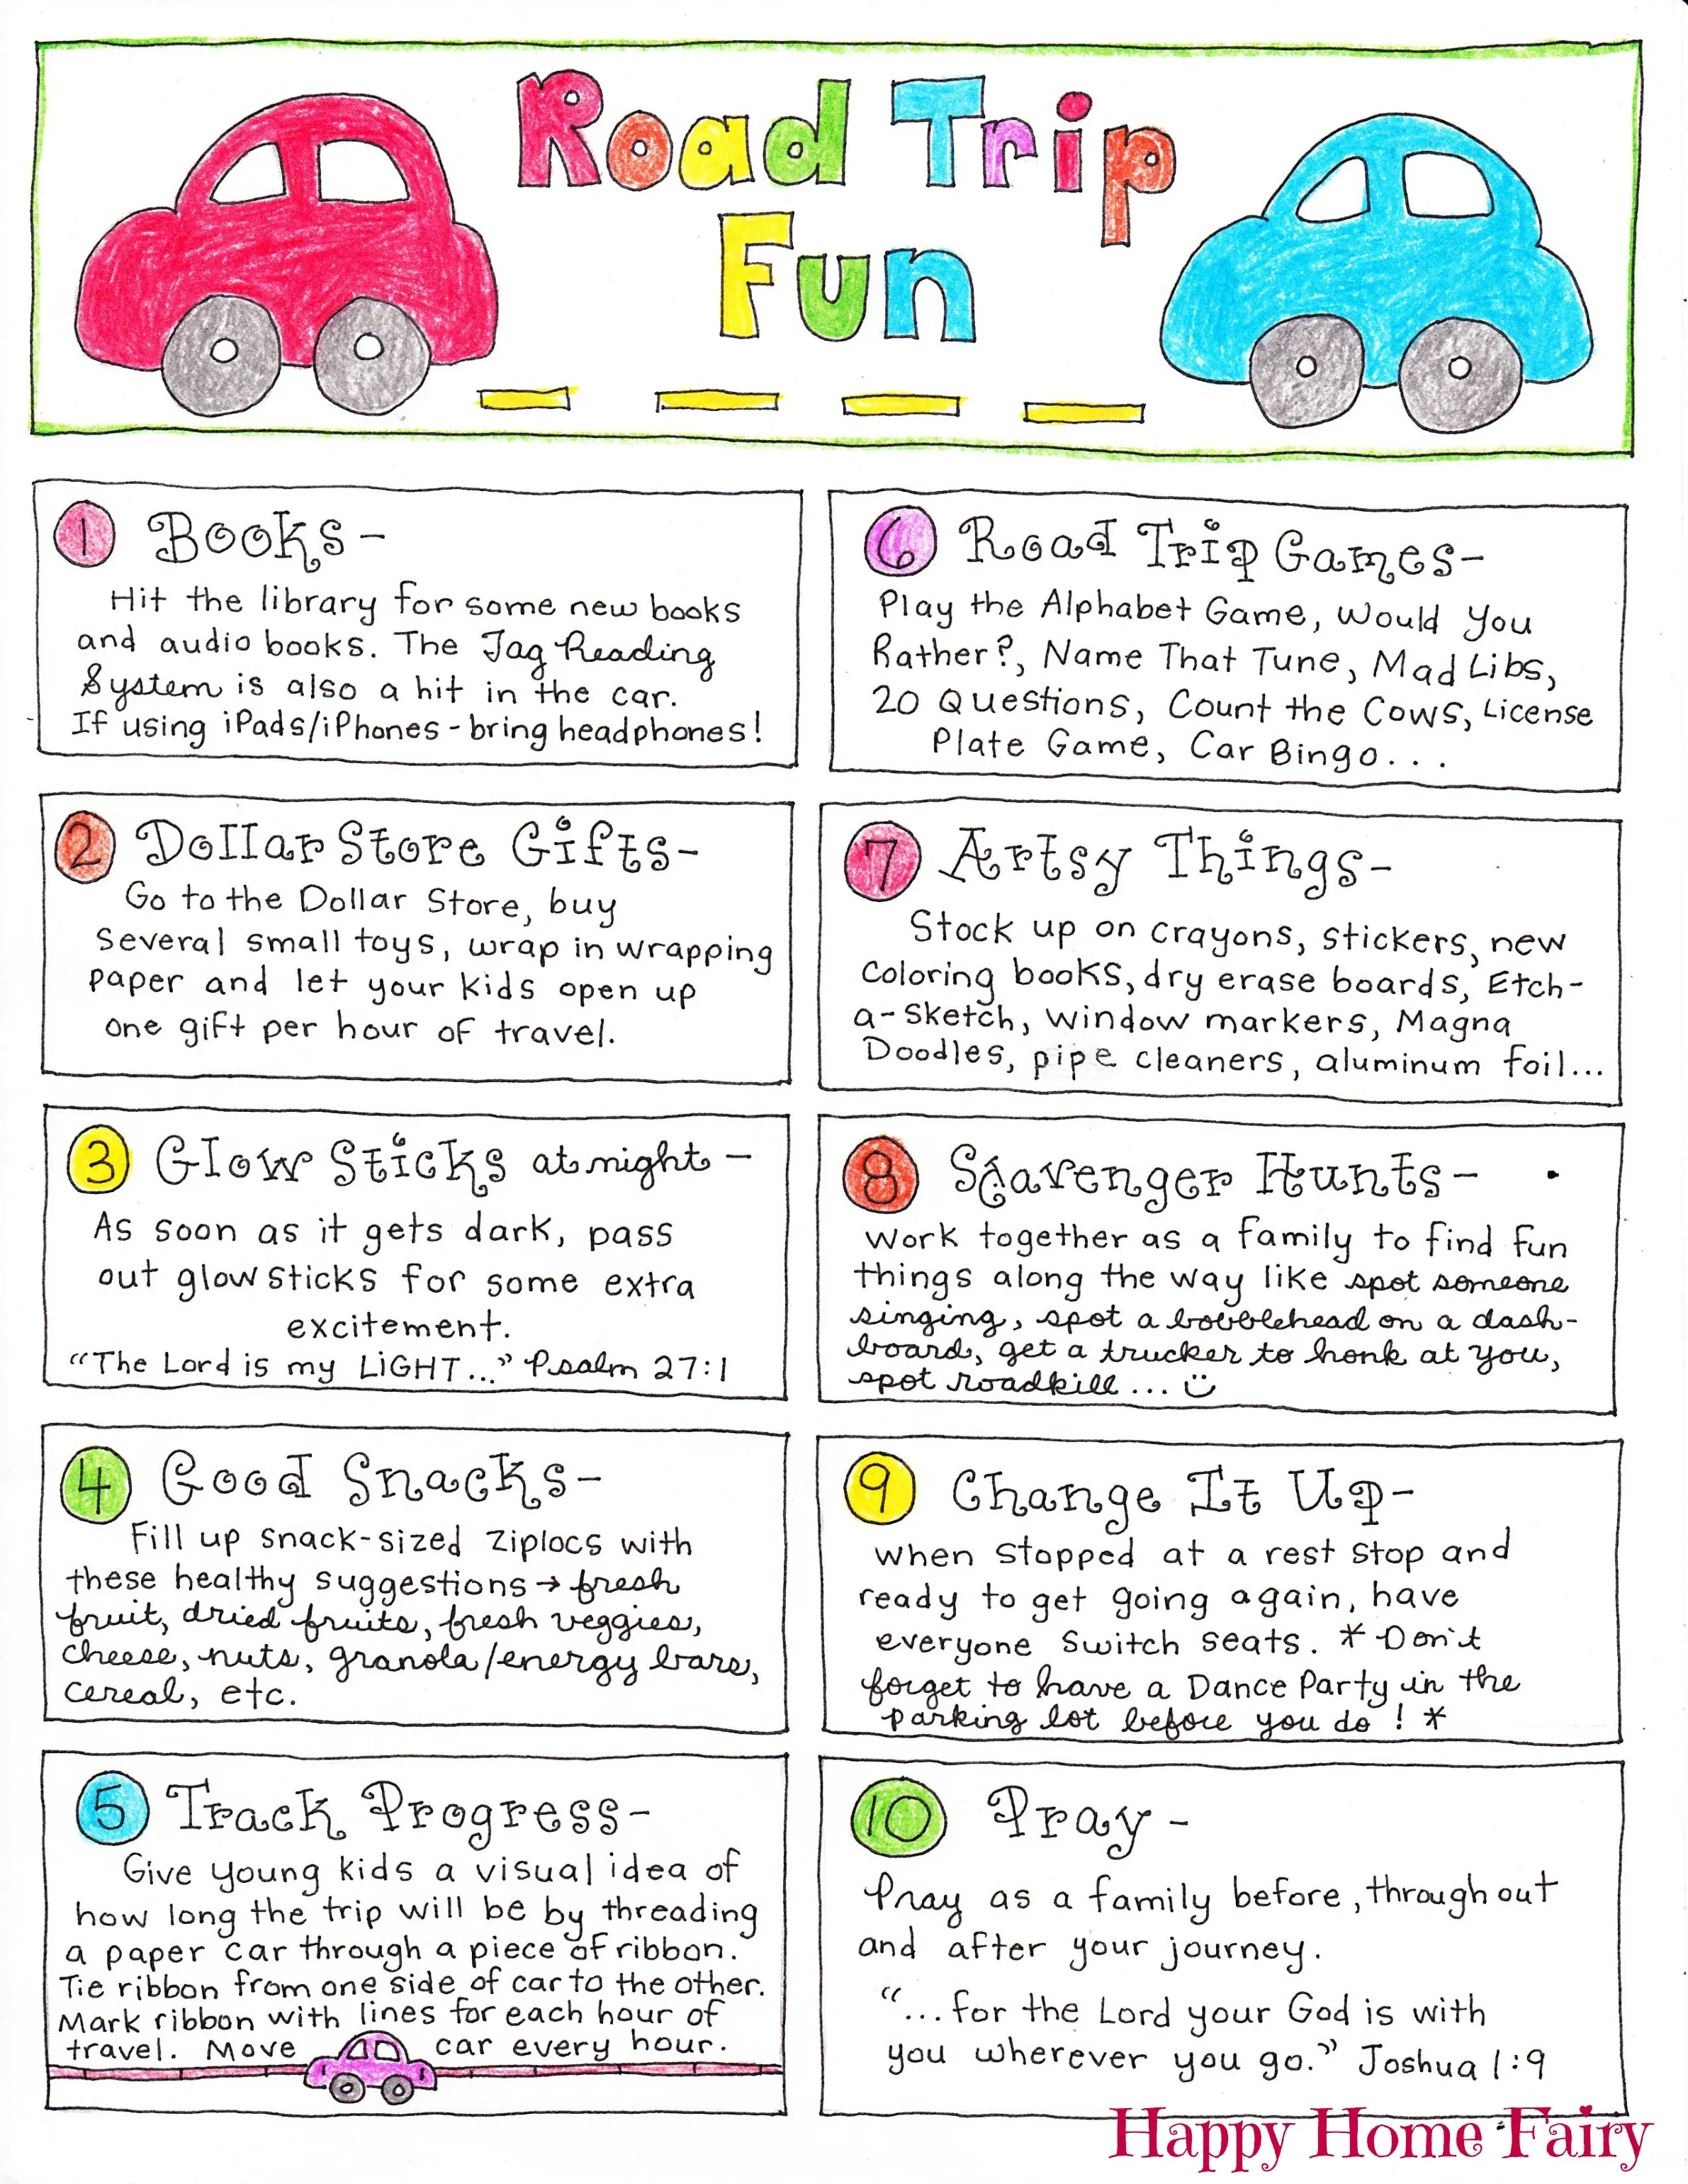 Road Trip
Fun
1 Books-
Hit the library for some new books
and audio books. The Tag Reading
System is also a hit in the car.
If using iPads/iPhones - bring headphones!
2 Dollar Store Gifts-
Go to the Dollar Store, buy
several small toys, wrap in wrapping
paper and let your kids open up
one gift per hour of travel.
3 Glow Sticks at night -
As soon as it gets dark, pass
out glow sticks for some extra
excitement.
"The Lord is my LiGHT..." Psalm 27:1
4 Good Snacks-
Fill up snack-sized ziplocs with
these healthy suggestions → fresh
fruit, dried fruits, fresh veggies,
cheese, nuts, granola/energy bars,
cereal, etc.
5 Track Progress-
Give young kids a visual idea of
how long the trip will be by threading
a paper car through a piece of ribbon.
Tie ribbon from one side of car to the other.
Mark ribbon with lines for each hour of
travel. Move car every hour.
6 Road Trip Games-
Play the Alphabet Game, Would You
Rather?, Name That Tune, Mad Libs,
20 Questions, Count the Cows, License
Plate Game, Car Bingo...
7 Artsy Things-
Stock up on crayons, stickers, new
coloring books, dry erase boards, Etch-
a-Sketch, window markers, Magna
Doodles, pipe cleaners, aluminum foil...
8 Scavenger Hunts-
Work together as a family to find fun
things along the way like spot someone
singing, spot a bobblehead on a dash-
board, get a trucker to honk at you,
spot roadkill...
9 Change It Up-
When stopped at a rest stop and
ready to get going again, have
everyone switch seats. * Don't
forget to have a Dance Party in the
parking lot before you do! *
10 Pray -
Pray as a family before, throughout
and after your journey.
"...for the Lord your God is with
you wherever you go." Joshua 1:9
Happy Home Fairy